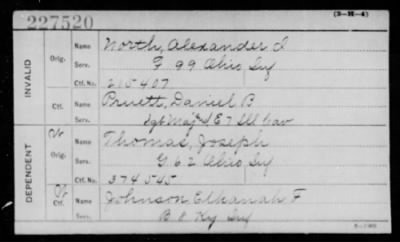 227520
(3-H-4)
Name North, Alexander J
Orig. Serv. F 99 Ohio Inf
Ctf. No. 215407
INVALID
Name Pruett, Daniel B
Ctf. Serv. Sgt Maj E 7 Ill Cav
Name Thomas, Joseph
Orig. Serv. G 62 Ohio Inf
Ctf. No. 374545
DEPENDENT
Name Johnson Elkanah F
Ctf. Serv. B 8 Ky Inf